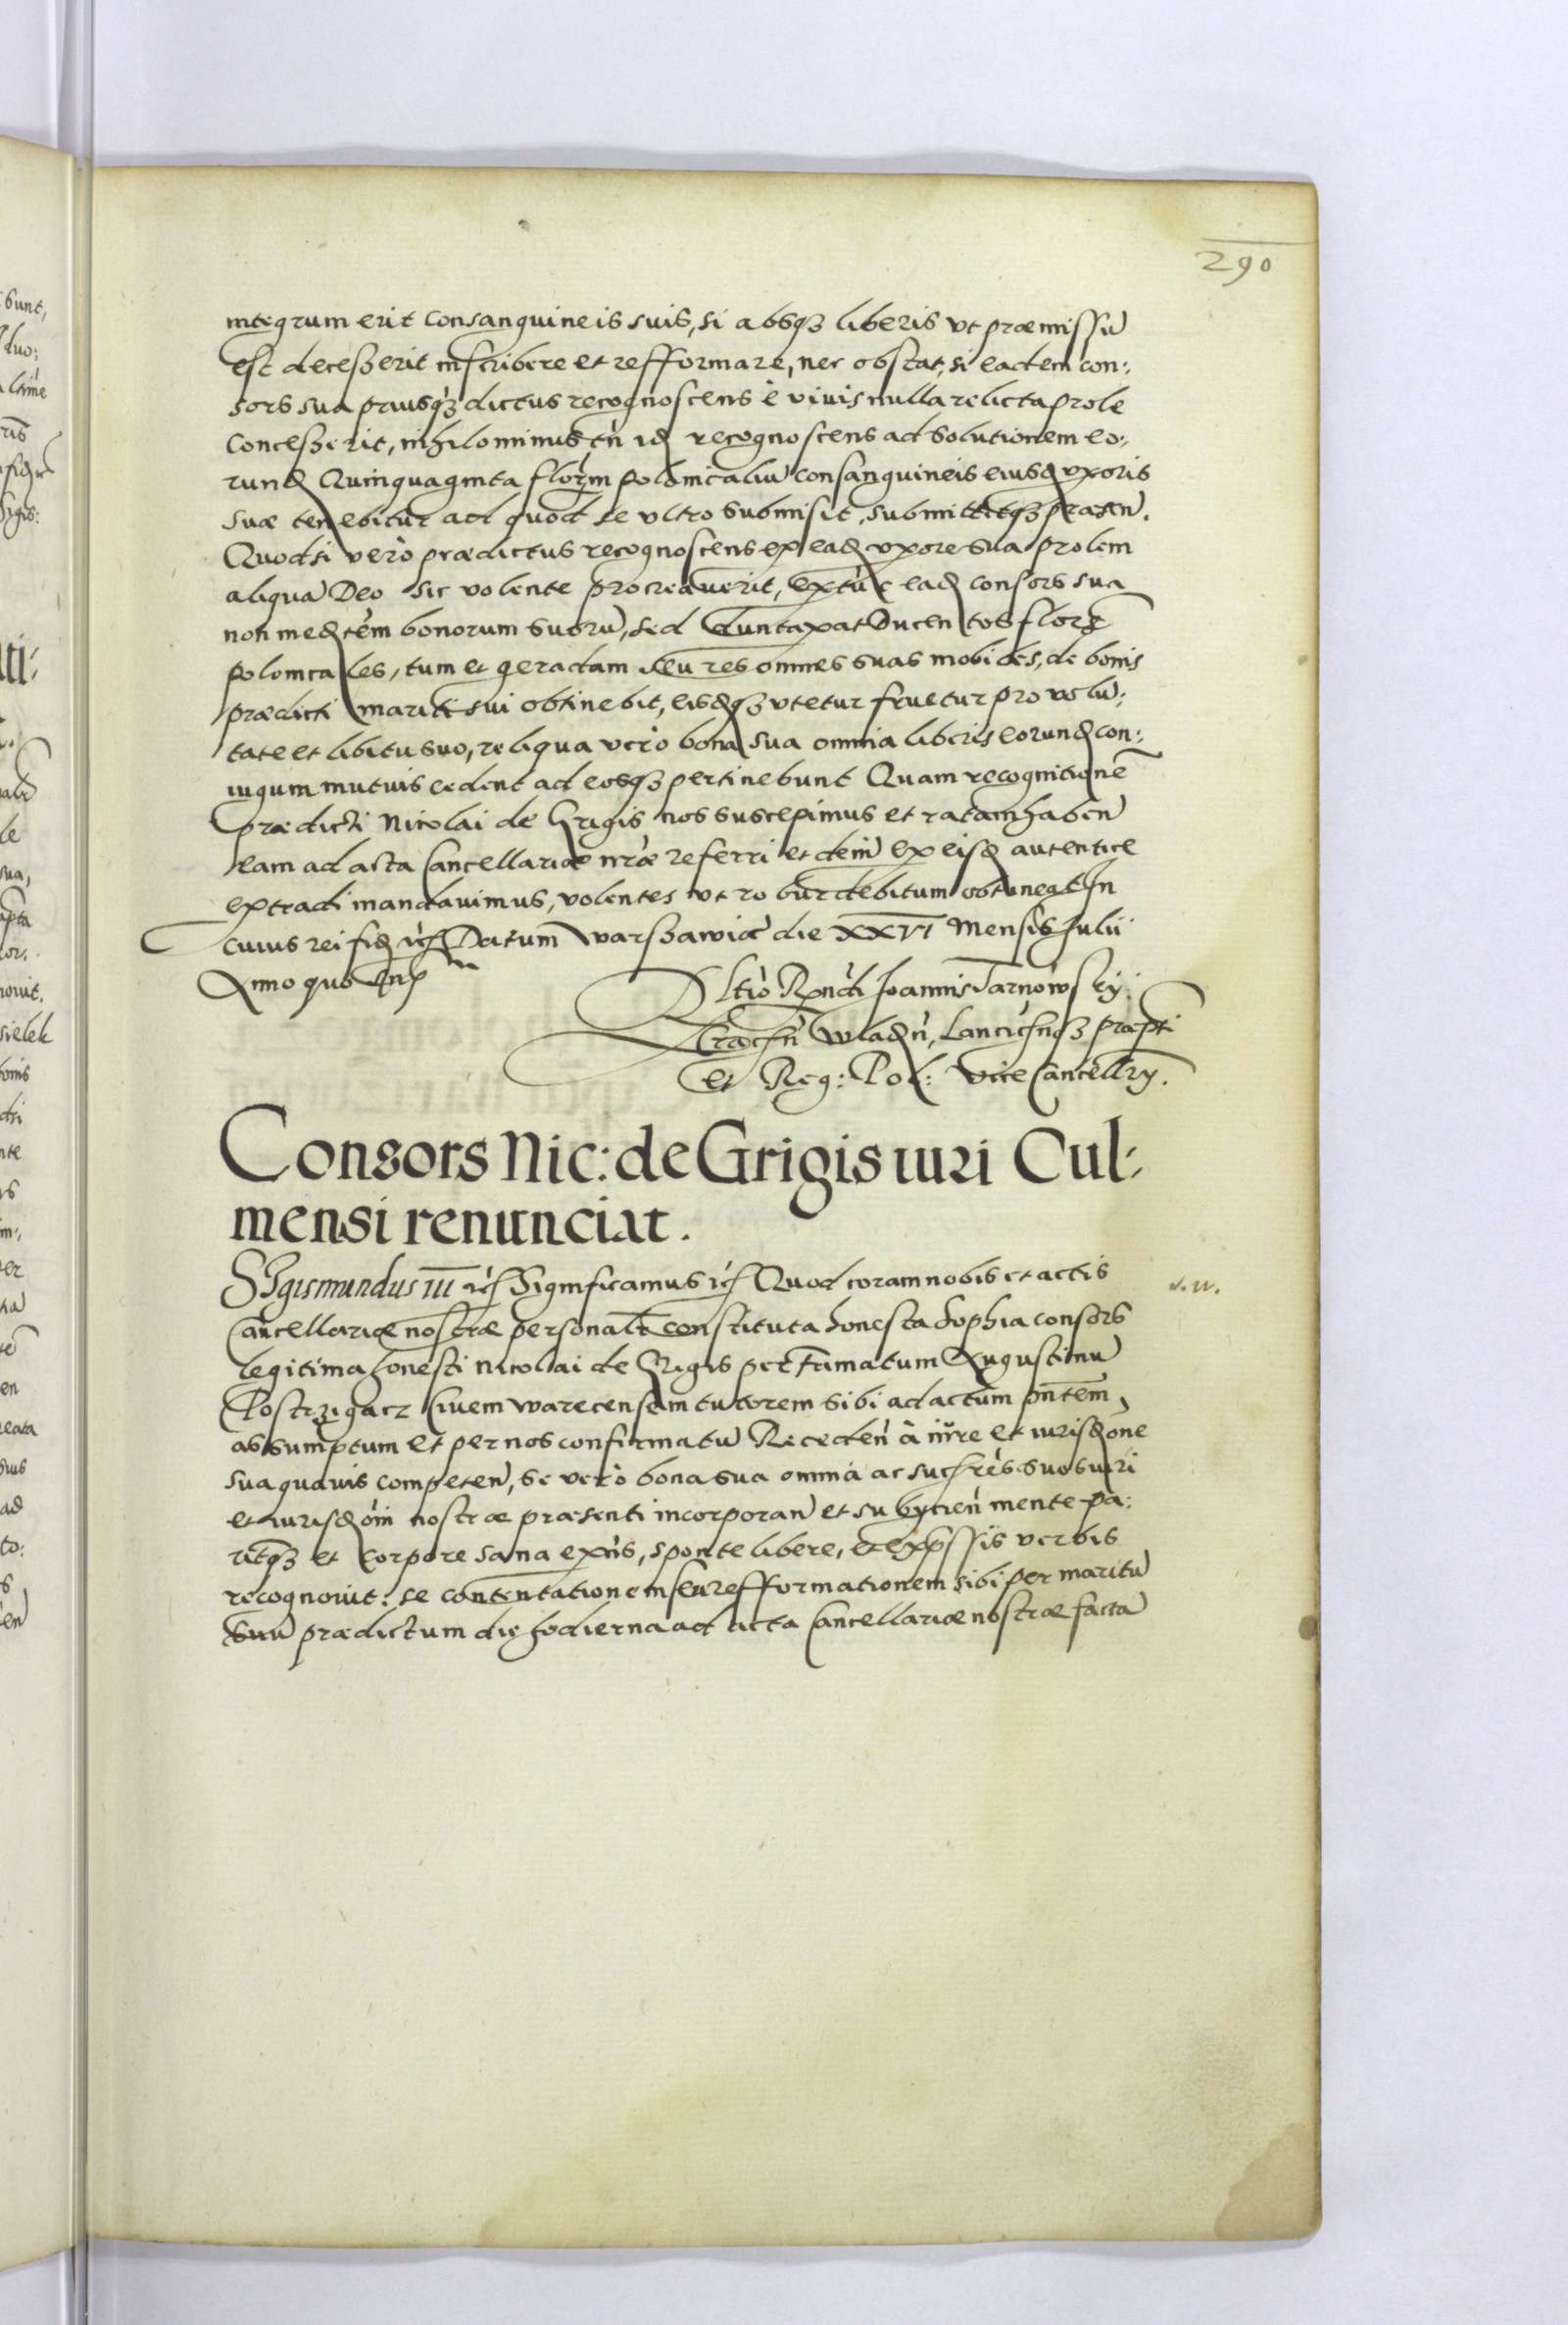 290
integrum erit consanguineis suis, si absqȝ liberis vt præmissũ
est deceßerit inscribere et refformare, nec obstat, si eadem con:
sors sua priusqȝ dictus recognoscens è viuis nulla relicta prole
conceßerit, nihilominus tñ idẽ recognoscens ad solutionem eo:
rundẽ Quinquaginta floRm polonicaliũ consanguineis eiusdẽ vxoris
suæ tenebitur ad quod se vltro submisit, submittitqȝ præsen̄.
Quodsi verò prædictus recognoscens ex eadẽ vxore sua prolem
aliquã Deo sic volente procreauerit, extũc eadẽ consors sua
non medtẽm bonorum suorũ, sed duntaxat Ducentos florẽ
polonicales, tum et geradam seu res omnes suas mobiles, de bonis
prædicti mariti sui obtinebit, eisdqȝ vtetur fruetur pro volũ:
tate et libitu suo, reliqua verò bona sua omnia liberis eorundẽ con:
iugum mutuis cedent ad eosqȝ pertinebunt Quam recognitionẽ
prædicti Nicolai de Grigis nos suscepimus et ratam haben̄
eam ad acta Cancellariæ nrãe referri et dein̄ ex eisdẽ autentice
extradi mandauimus, volentes vt robur debitum obtineat In
cuius rei fidẽ etc̃ Datum Warszawiæ die XXVI Mensis Julii
Anno quo
Rltiò Rñdi Joannis Tarnowskij:
Cracn̄ Wladn̄, Lancicnqȝ præpti
et Reg: Pol: ViceCancellrij.
Consors Nic: de Grigis iuri Cul-
mensi renunciat.
SIgismundus III etc̃ Significamus etc̃ Quod coram nobis et actis
Cancellariæ nostræ personalr̃ constituta honesta Sophia consors
legitima honesti Nicolai de Grigis per Famatum Augustinũ
Postrzigacz Ciuem Warecensem tutorem sibi ad actum pñtem,
assumptum et per nos confirmatũ Receden̄ à iure et iurisdõne
sua quauis competen̄, se verò bona sua omnia ac succres̃ suos iuri
et iurisdõni nostræ præsenti incorporan̄ et subijcien̄ mente pa:
ritqȝ et corpore sana exñs, sponte libere, et expssis verbis
recognouit: se contentationem seu refformationem sibi per maritũ
suũ prædictum die hodierna ad acta Cancellariæ nostræ factã